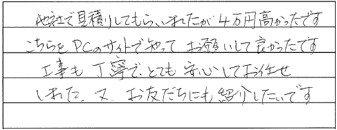 他社で見積りしてもらいましたが4万円高かったです
こちらをPCのサイトでやって お願いして良かったです
工事も丁寧で、とても安心してお任せ
しれた、又、お友だちにも紹介したいです